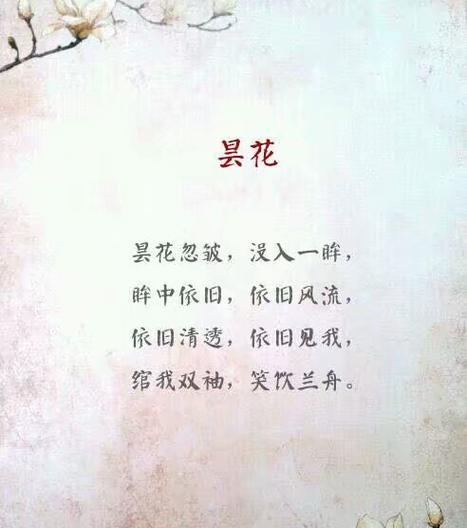 昙花
昙花忽皱，没入一眸，
眸中依旧，依旧风流，
依旧清透，依旧见我，
绾我双袖，笑饮兰舟。